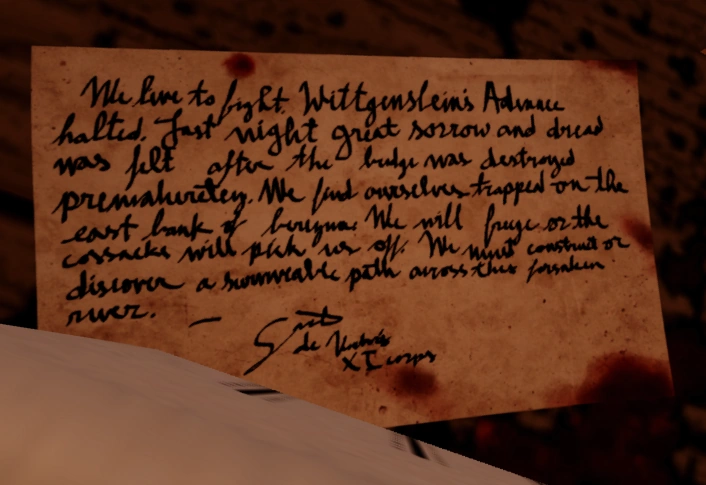 We live to fight. Wittgenstein's Advance
halted. Last night great sorrow and dread
was felt after the bridge was destroyed
prematuretey. We find ourselves trapped on the
east bank of berezina. We will freeze or the
cossacks will pick us off. We must construct or
discover a surviveable path across this forsaken
river. —
de
XI corps